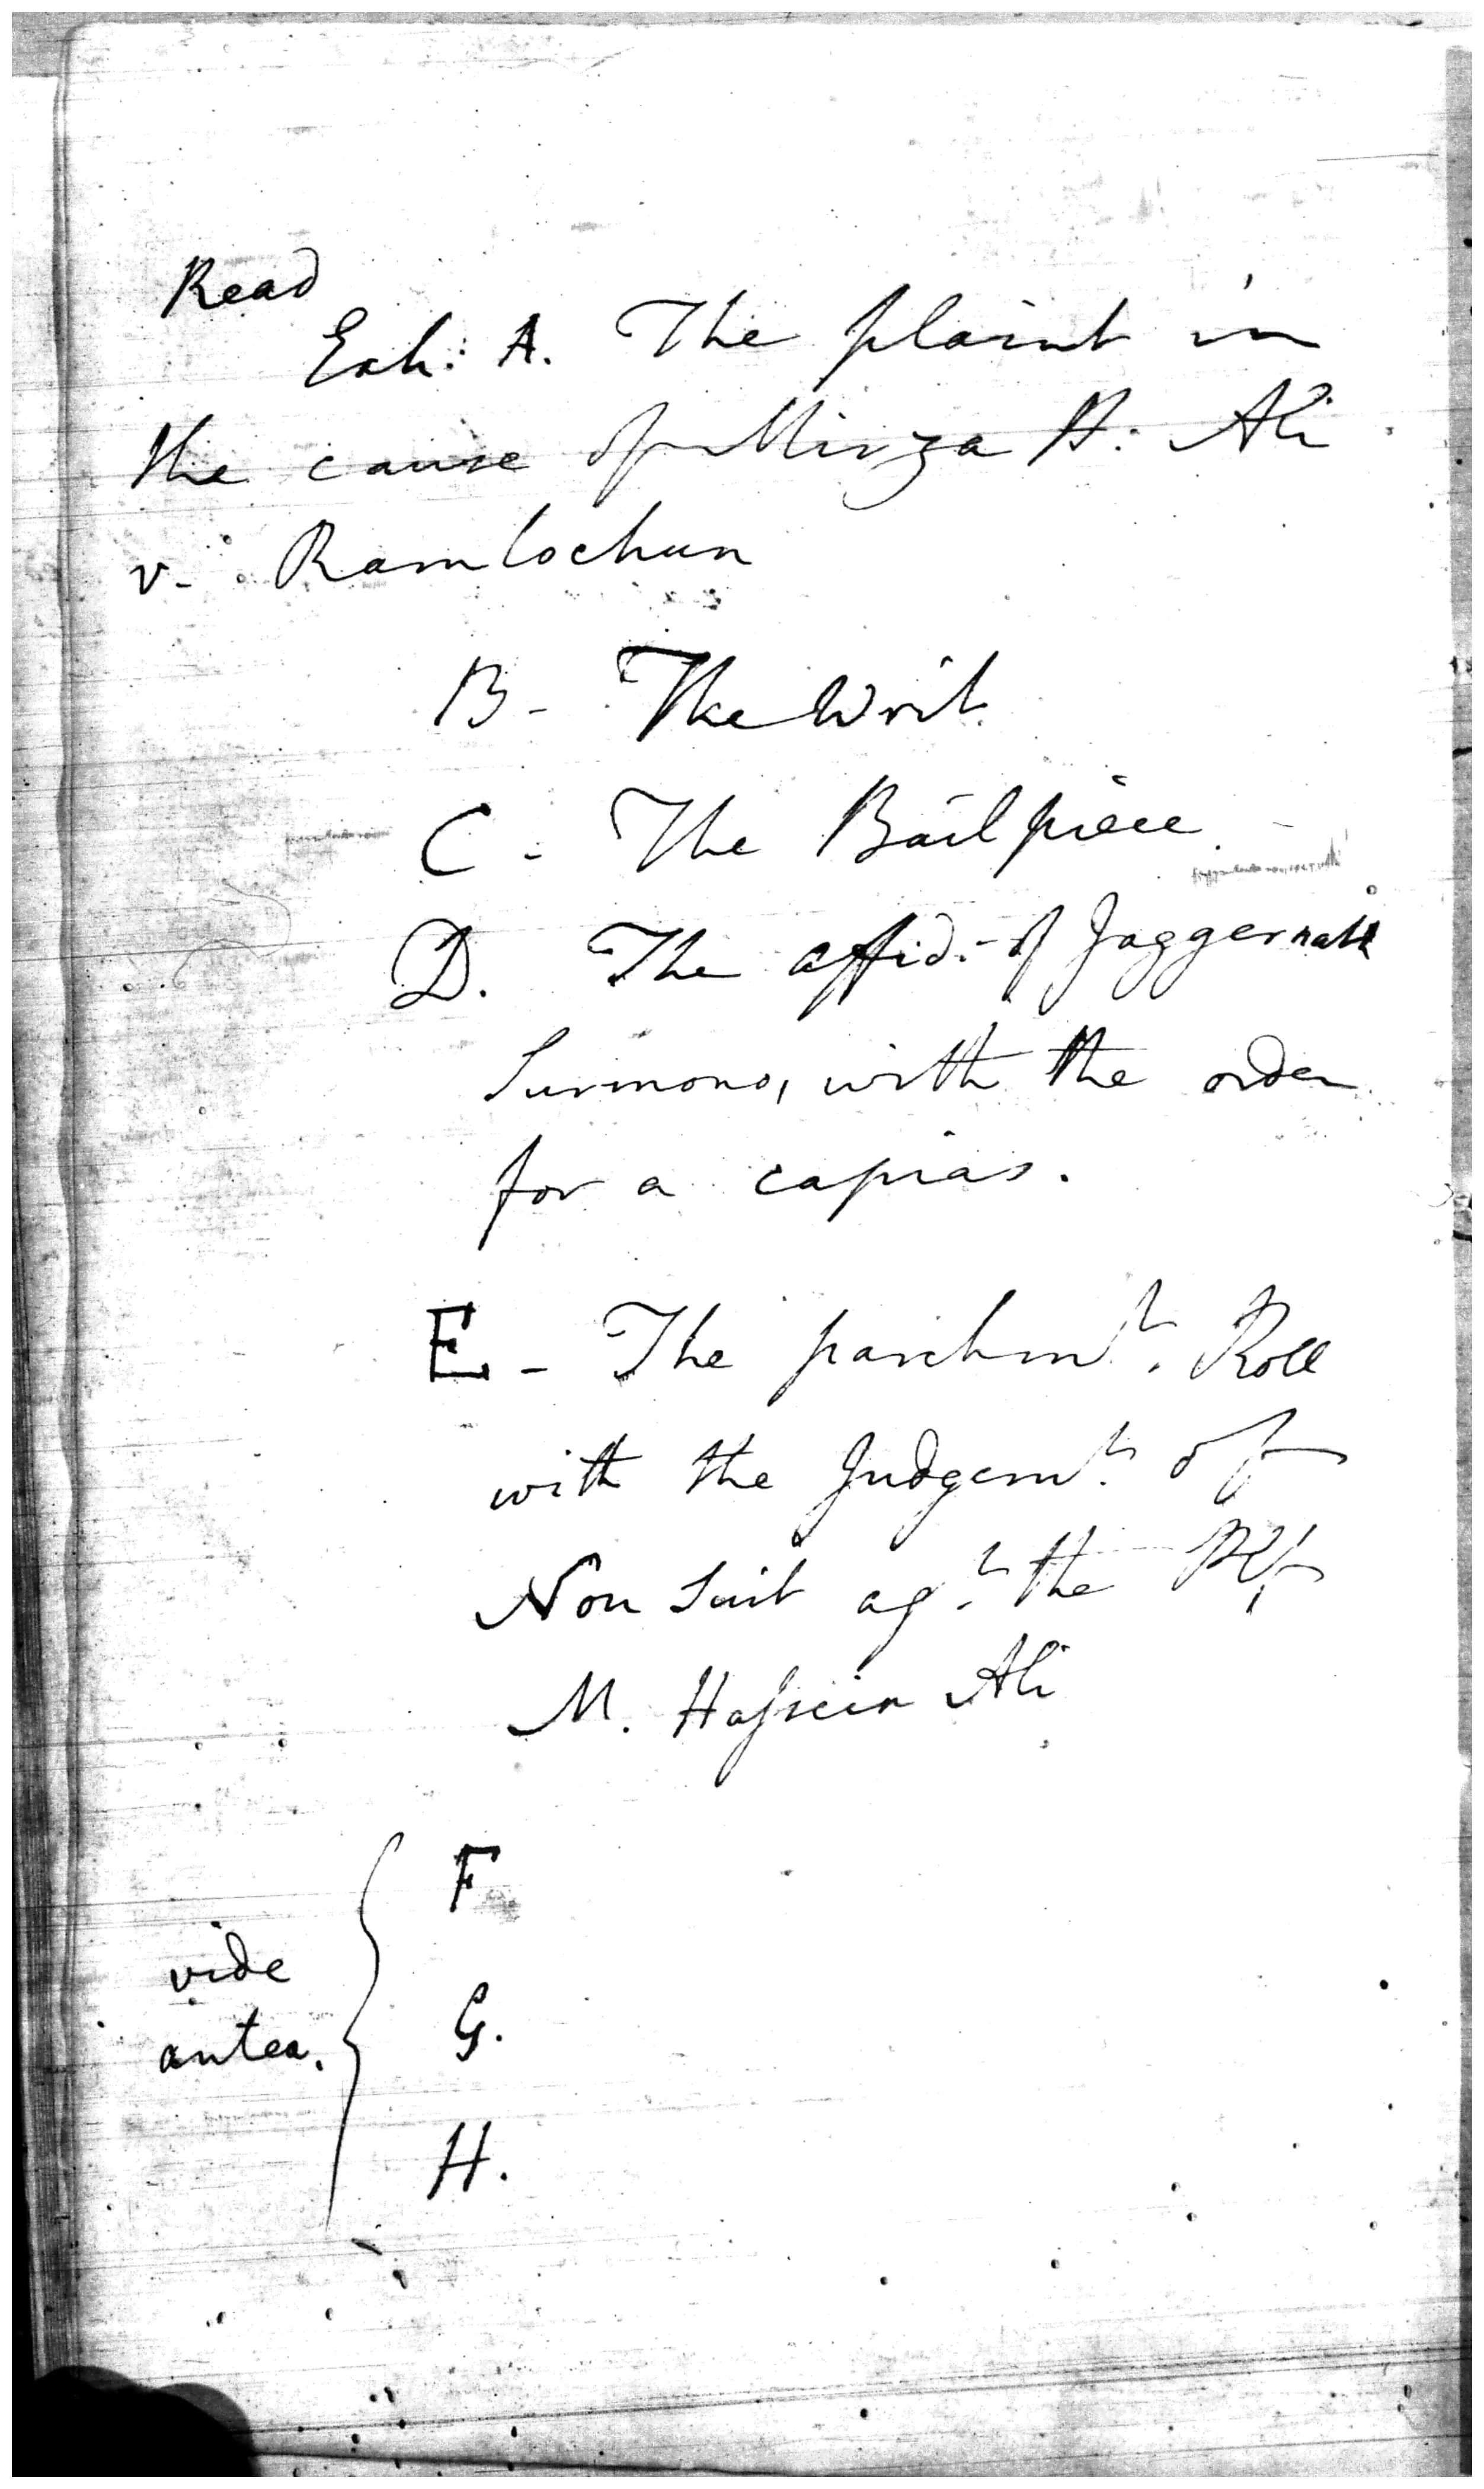 Read
Exh: A. The plaint in
the cause of Mirza H: Ali
v. Ramlochun
B - The Writ.
C - The Bailpiece
D. The affid. of Jaggernath
Surmono, with the order
for a capias.
E - The parchmt. Roll
with the Judgemt. of
Non Suit agt. the Plf
M. Hossein Ali
F
vide
G.
antea.
H.